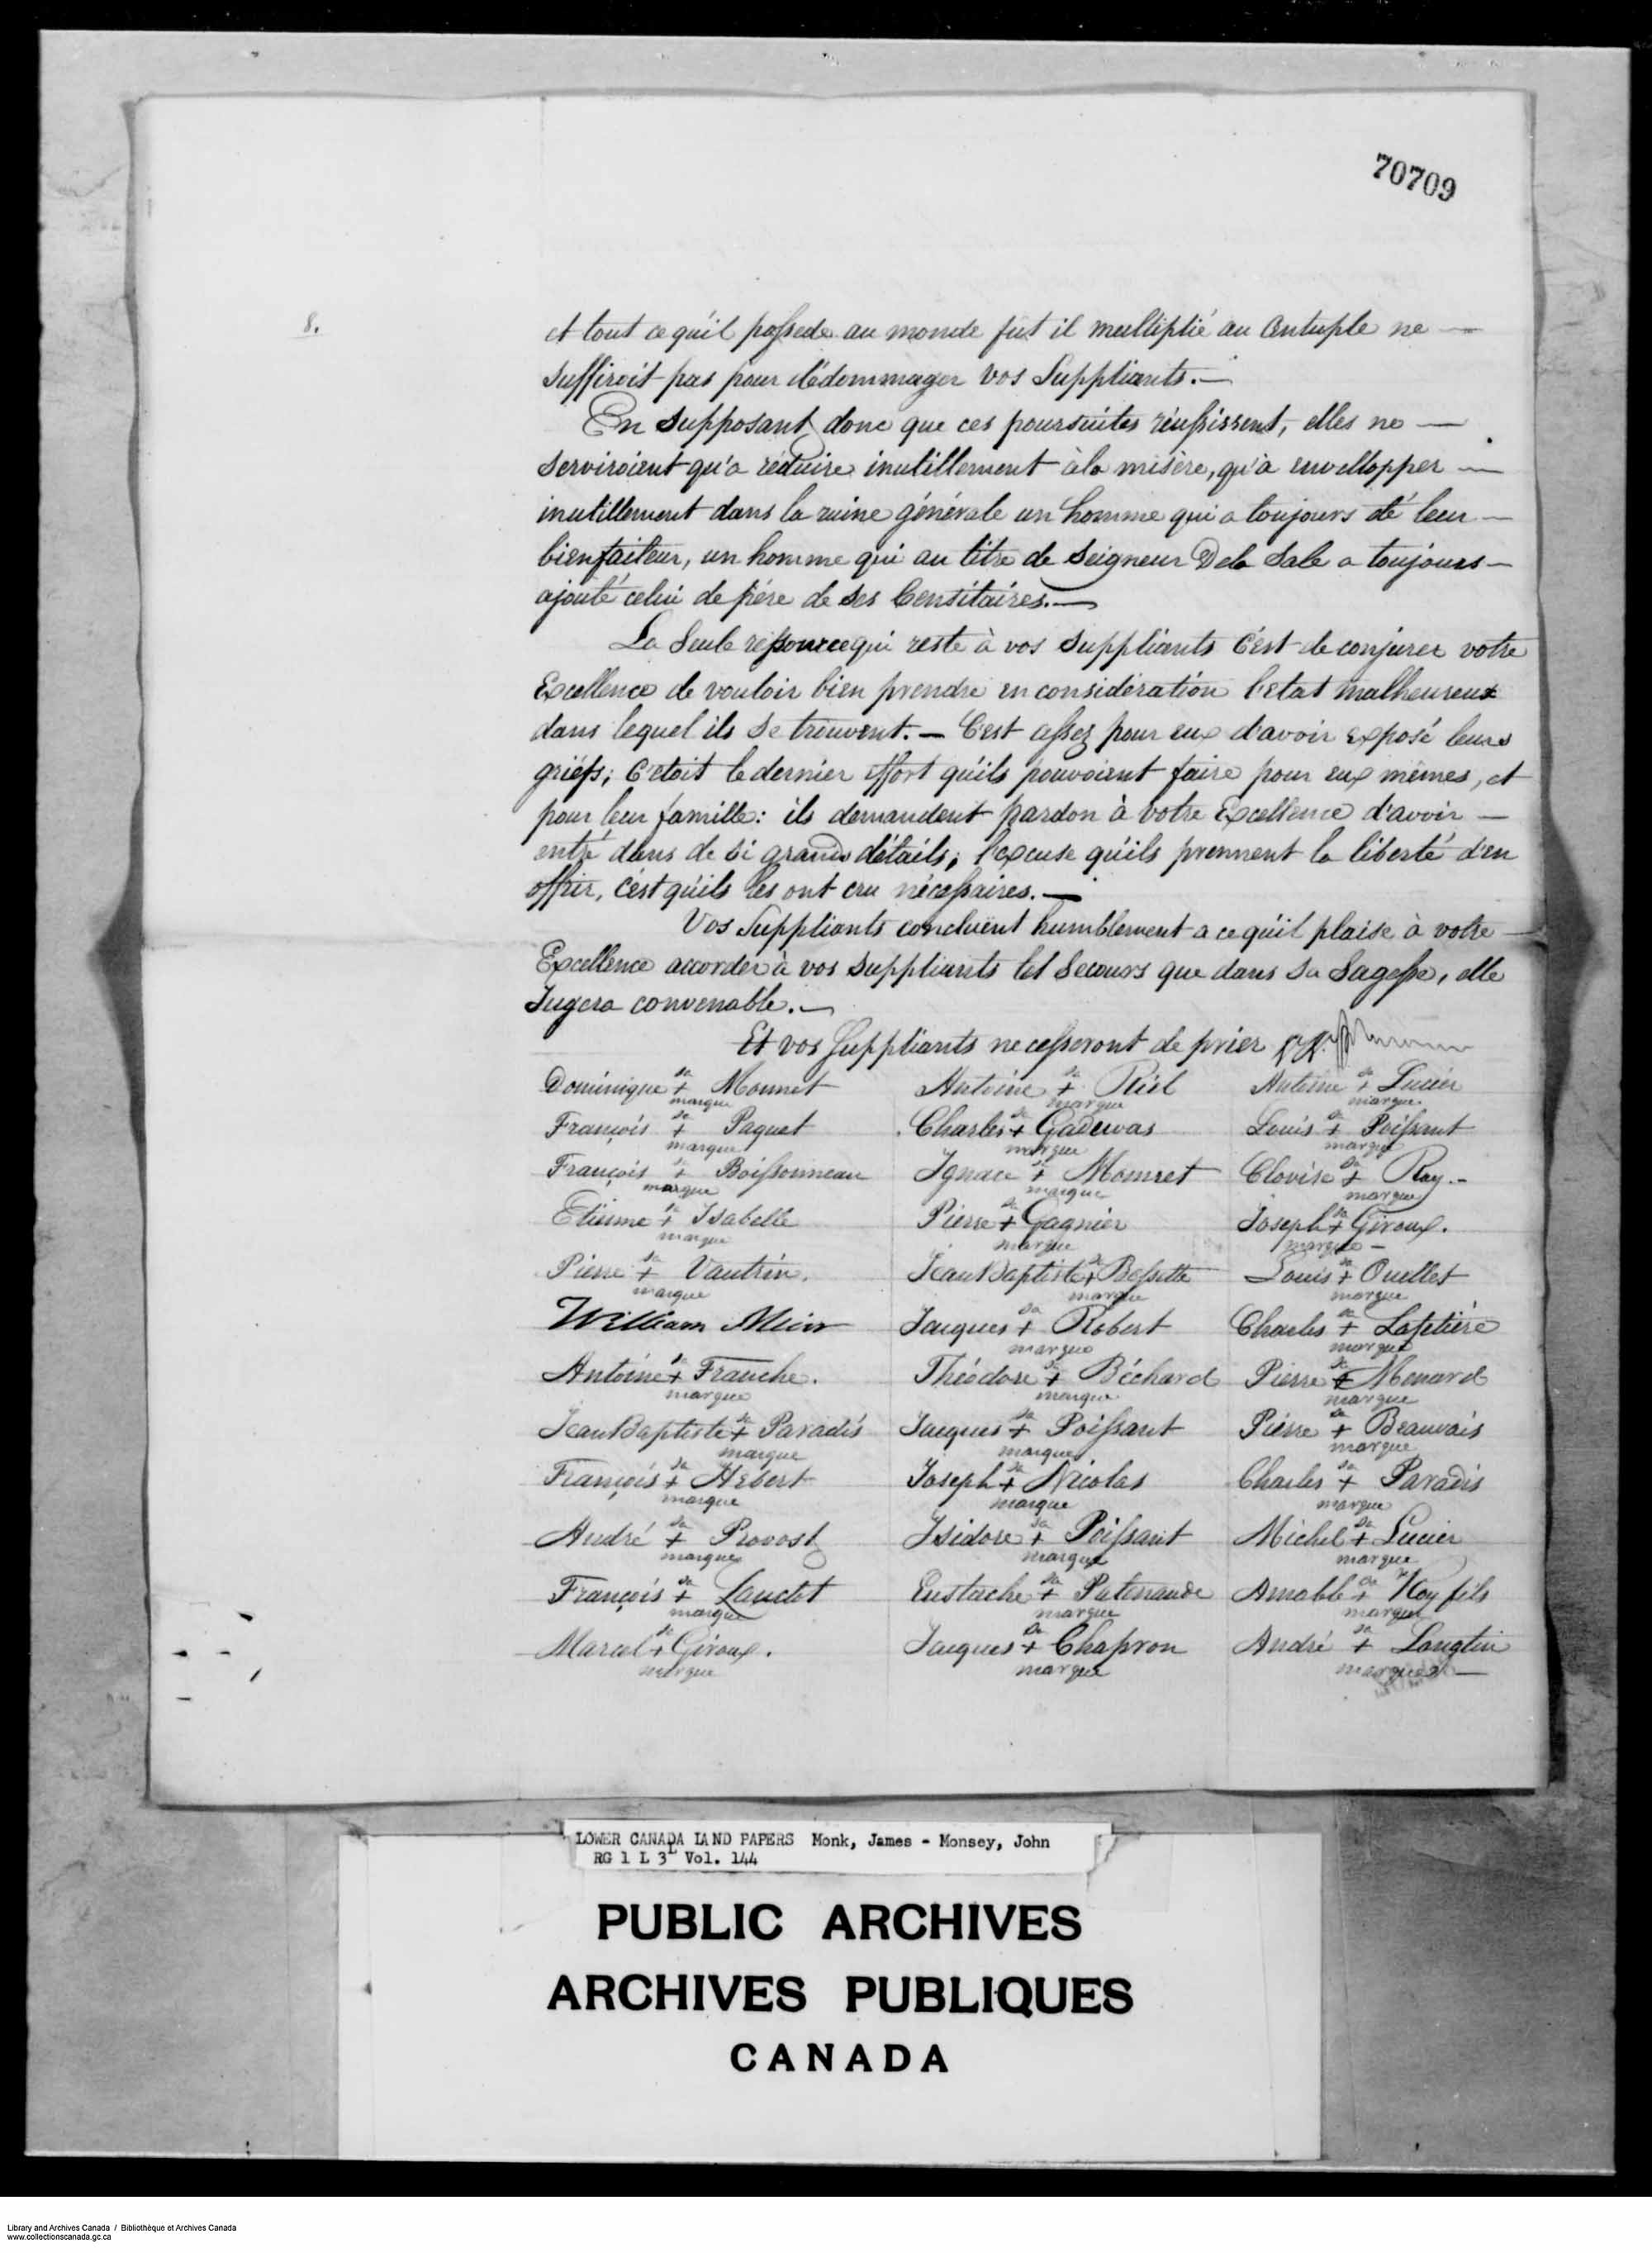 70709
8.
et tout ce qu'il possede au monde fut il multiplié au Centuple ne —
suffiroit pas pour dédommager vos Suppliants. —
En supposant donc que ces poursuites réussissent, elles ne —
serviroient qu'a réduire inutillement à la misère, qu'à envellopper —
inutillement dans la ruine générale un homme qui a toujours été leur —
bienfaiteur, un homme qui au titre de Seigneur De la Sale a toujours —
ajouté celui de père de ses Censitaires. —
La Seule ressource qui reste à vos suppliants C'est de conjurer votre
Excellence de vouloir bien prendre en considération l'etat malheureux
dans lequel ils se trouvent. — C'est assez pour eux d'avoir exposé leurs
griéfs; C'etoit le dernier effort qu'ils pouvoient faire pour eux mêmes, et
pour leur famille: ils demandent pardon à votre Excellence d'avoir —
entré dans de si grands détails; l'excuse qu'ils prennent la liberté d'en
offrir, c'est qu'ils les ont cru nécessaires. —
Vos Suppliants concluent humblement a ce qu'il plaise à votre —
Excellence accorder à vos suppliants les Secours que dans sa Sagesse, elle
Jugera convenable. —
Et vos Suppliants ne cesseront de prier
Dominique sa + marque Monnet Antoine sa + marque Riel Antoine sa + marque Lucier
François sa + marque Paquet Charles sa + marque Gadewas Louis sa + marque Poissant
François sa + marque Boissonneau Ignace sa + marque Monnet Clovise sa + marque Roy. -
Etienne sa + marque Isabelle Pierre sa + marque Gagnier Joseph sa + marque Giroux.
Pierre sa + marque Vautrin. Jean Baptiste sa + marque Bessette Louis sa + marque Ouellet
William Jacques sa + marque Robert Charles sa + marque Lafetière
Antoine sa + marque Franche. Théodore sa + marque Béchard Pierre sa + marque Menard
Jean Baptiste sa + marque Paradis Jacques sa + marque Poissant Pierre sa + marque Beauvais
François sa + marque Hebert Joseph sa + marque Nicolas Charles sa + marque Paradis
André sa + marque Provost Isidore sa + marque Poissant Michel sa + marque Lucier
François sa + marque Eustache sa + marque Patenaude Amable sa + marque Roy fils
Marcel sa + marque Giroux. Jacques sa + marque Chapron André sa + marque Longtin
LOWER CANADA LAND PAPERS Monk, James - Monsey, John
RG 1 L 3L Vol. 144
PUBLIC ARCHIVES
ARCHIVES PUBLIQUES
CANADA
Library and Archives Canada / Bibliothèque et Archives Canada
www.collectionscanada.gc.ca